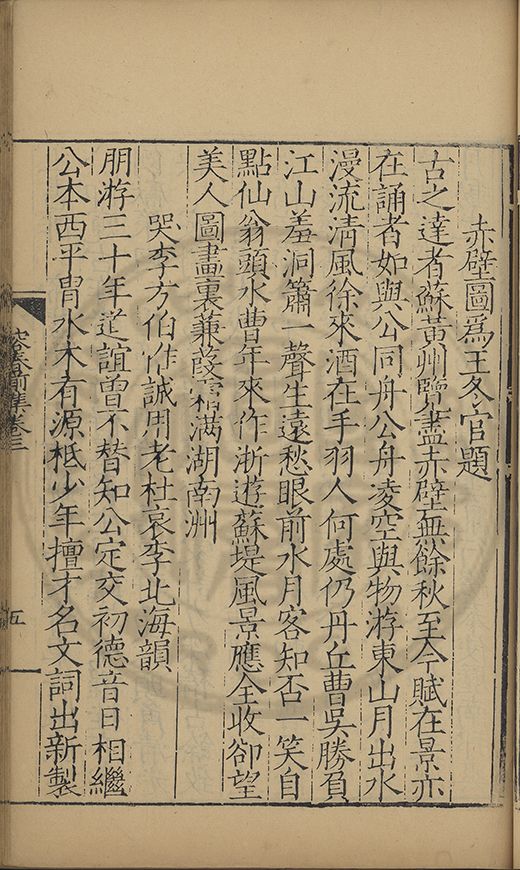 赤壁圖爲王冬官題
古之達者蘇黃州覽盡赤壁無餘秋至今賦在景亦
在誦者如與公同舟公舟凌空與物游東山月出水
漫流淸風徐來酒在手羽人何處仍丹丘曹吳勝負
江山羞洞簫一聲生遠愁眼前水月客知否一笑自
點仙翁頭水曹年來作浙遊蘇堤風景應全收卻望
美人圖畫裏蒹葭霜滿湖南洲
哭李方伯作誠用老杜哀李北海韻
朋游三十年道誼曾不替知公定交初德音日相繼
公本西平胄水木有源柢少年擅才名文詞出新製
前集卷三
五